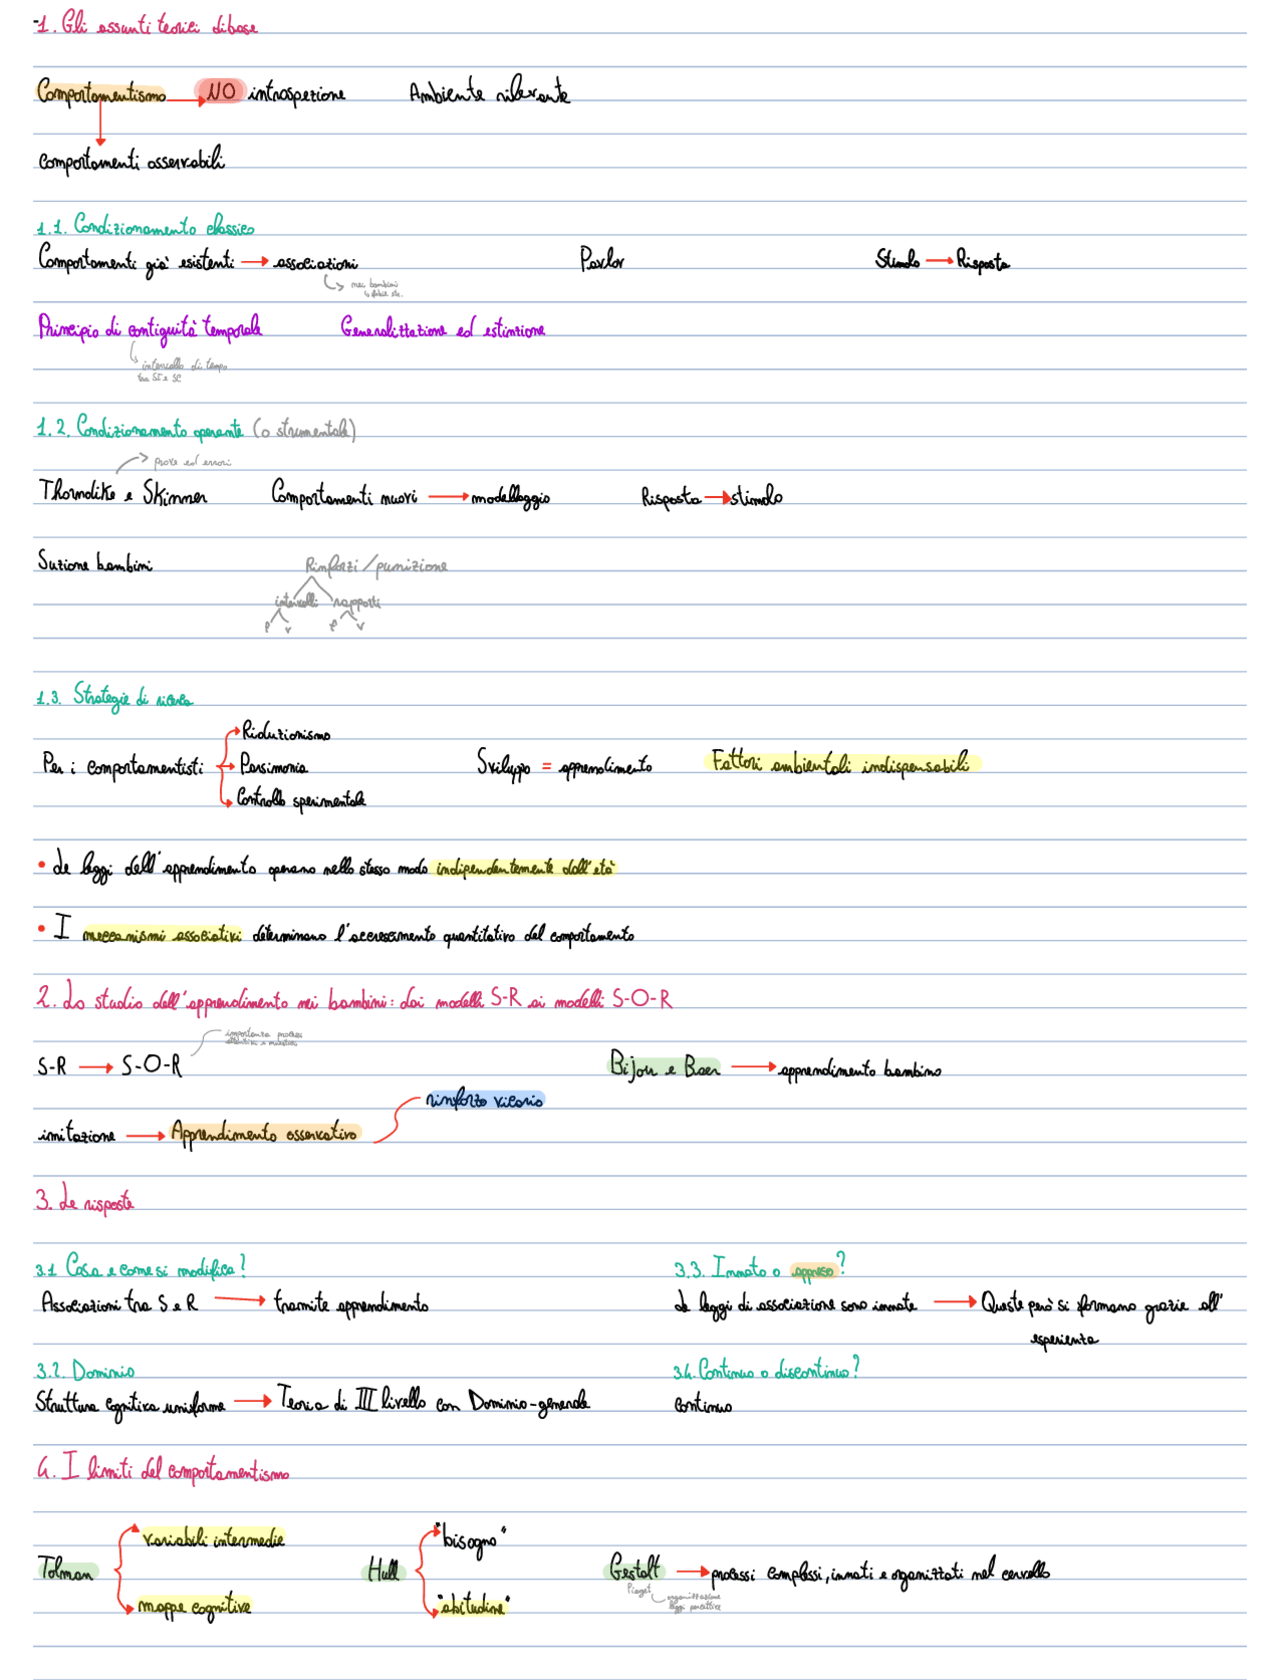 1. Gli assunti teorici di base
Comportamentismo → NO introspezione Ambiente rilevante
comportamenti osservabili
1.1. Condizionamento classico
Comportamenti già esistenti → associazioni Pavlov Stimolo → Risposta
nei bambini
fobie etc.
Principio di contiguità temporale Generalizzazione ed estinzione
intervallo di tempo
tra SI e SC
1.2. Condizionamento operante (o strumentale)
prove ed errori
Thorndike e Skinner Comportamenti nuovi → modellaggio Risposta → stimolo
Suzione bambini Rinforzi / punizione
intervalli rapporti
F V F V
1.3. Strategie di ricerca
Riduzionismo
Per i comportamentisti → Parsimonia Sviluppo = apprendimento Fattori ambientali indispensabili
Controllo sperimentale
• Le leggi dell'apprendimento operano nello stesso modo indipendentemente dall'età
• I meccanismi associativi determinano l'accrescimento quantitativo del comportamento
2. Lo studio dell'apprendimento nei bambini: dai modelli S-R ai modelli S-O-R
importanza processi
attentivi e mnestici
S-R → S-O-R Bijou e Baer → apprendimento bambino
rinforzo vicario
imitazione → Apprendimento osservativo
3. Le risposte
3.1 Cosa e come si modifica? 3.3. Innato o appreso?
Associazioni tra S e R → tramite apprendimento Le leggi di associazione sono innate → Queste però si formano grazie all'
esperienza
3.2. Dominio 3.4. Continuo o discontinuo?
Struttura cognitiva uniforme → Teoria di III livello con Dominio-generale continuo
4. I limiti del comportamentismo
variabili intermedie "bisogno"
Tolman Hull Gestalt → processi complessi, innati e organizzati nel cervello
Piaget organizzazione
leggi percettive
mappe cognitive "abitudine"